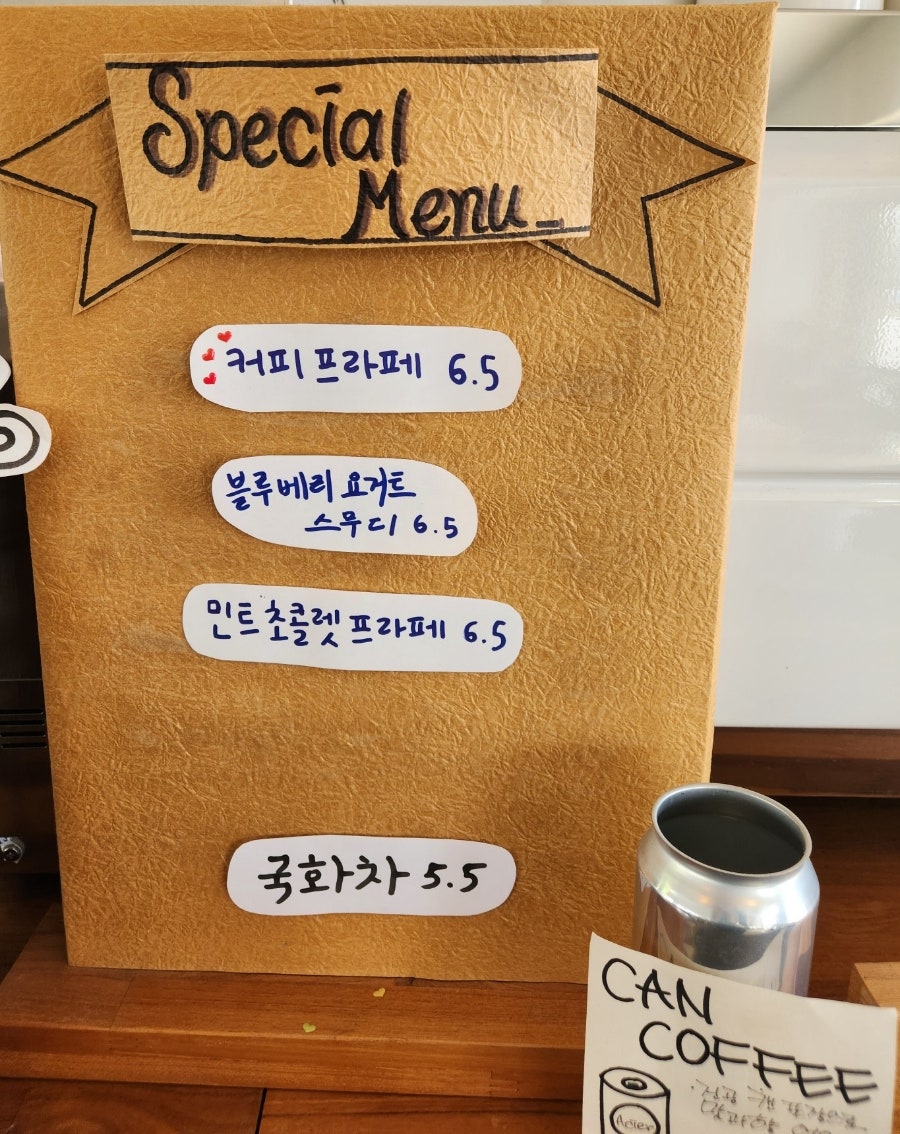 Special
Menu
커피 프라페 6.5
블루베리 요거트
스무디 6.5
민트 초콜렛 프라페 6.5
국화차 5.5
CAN
COFFEE